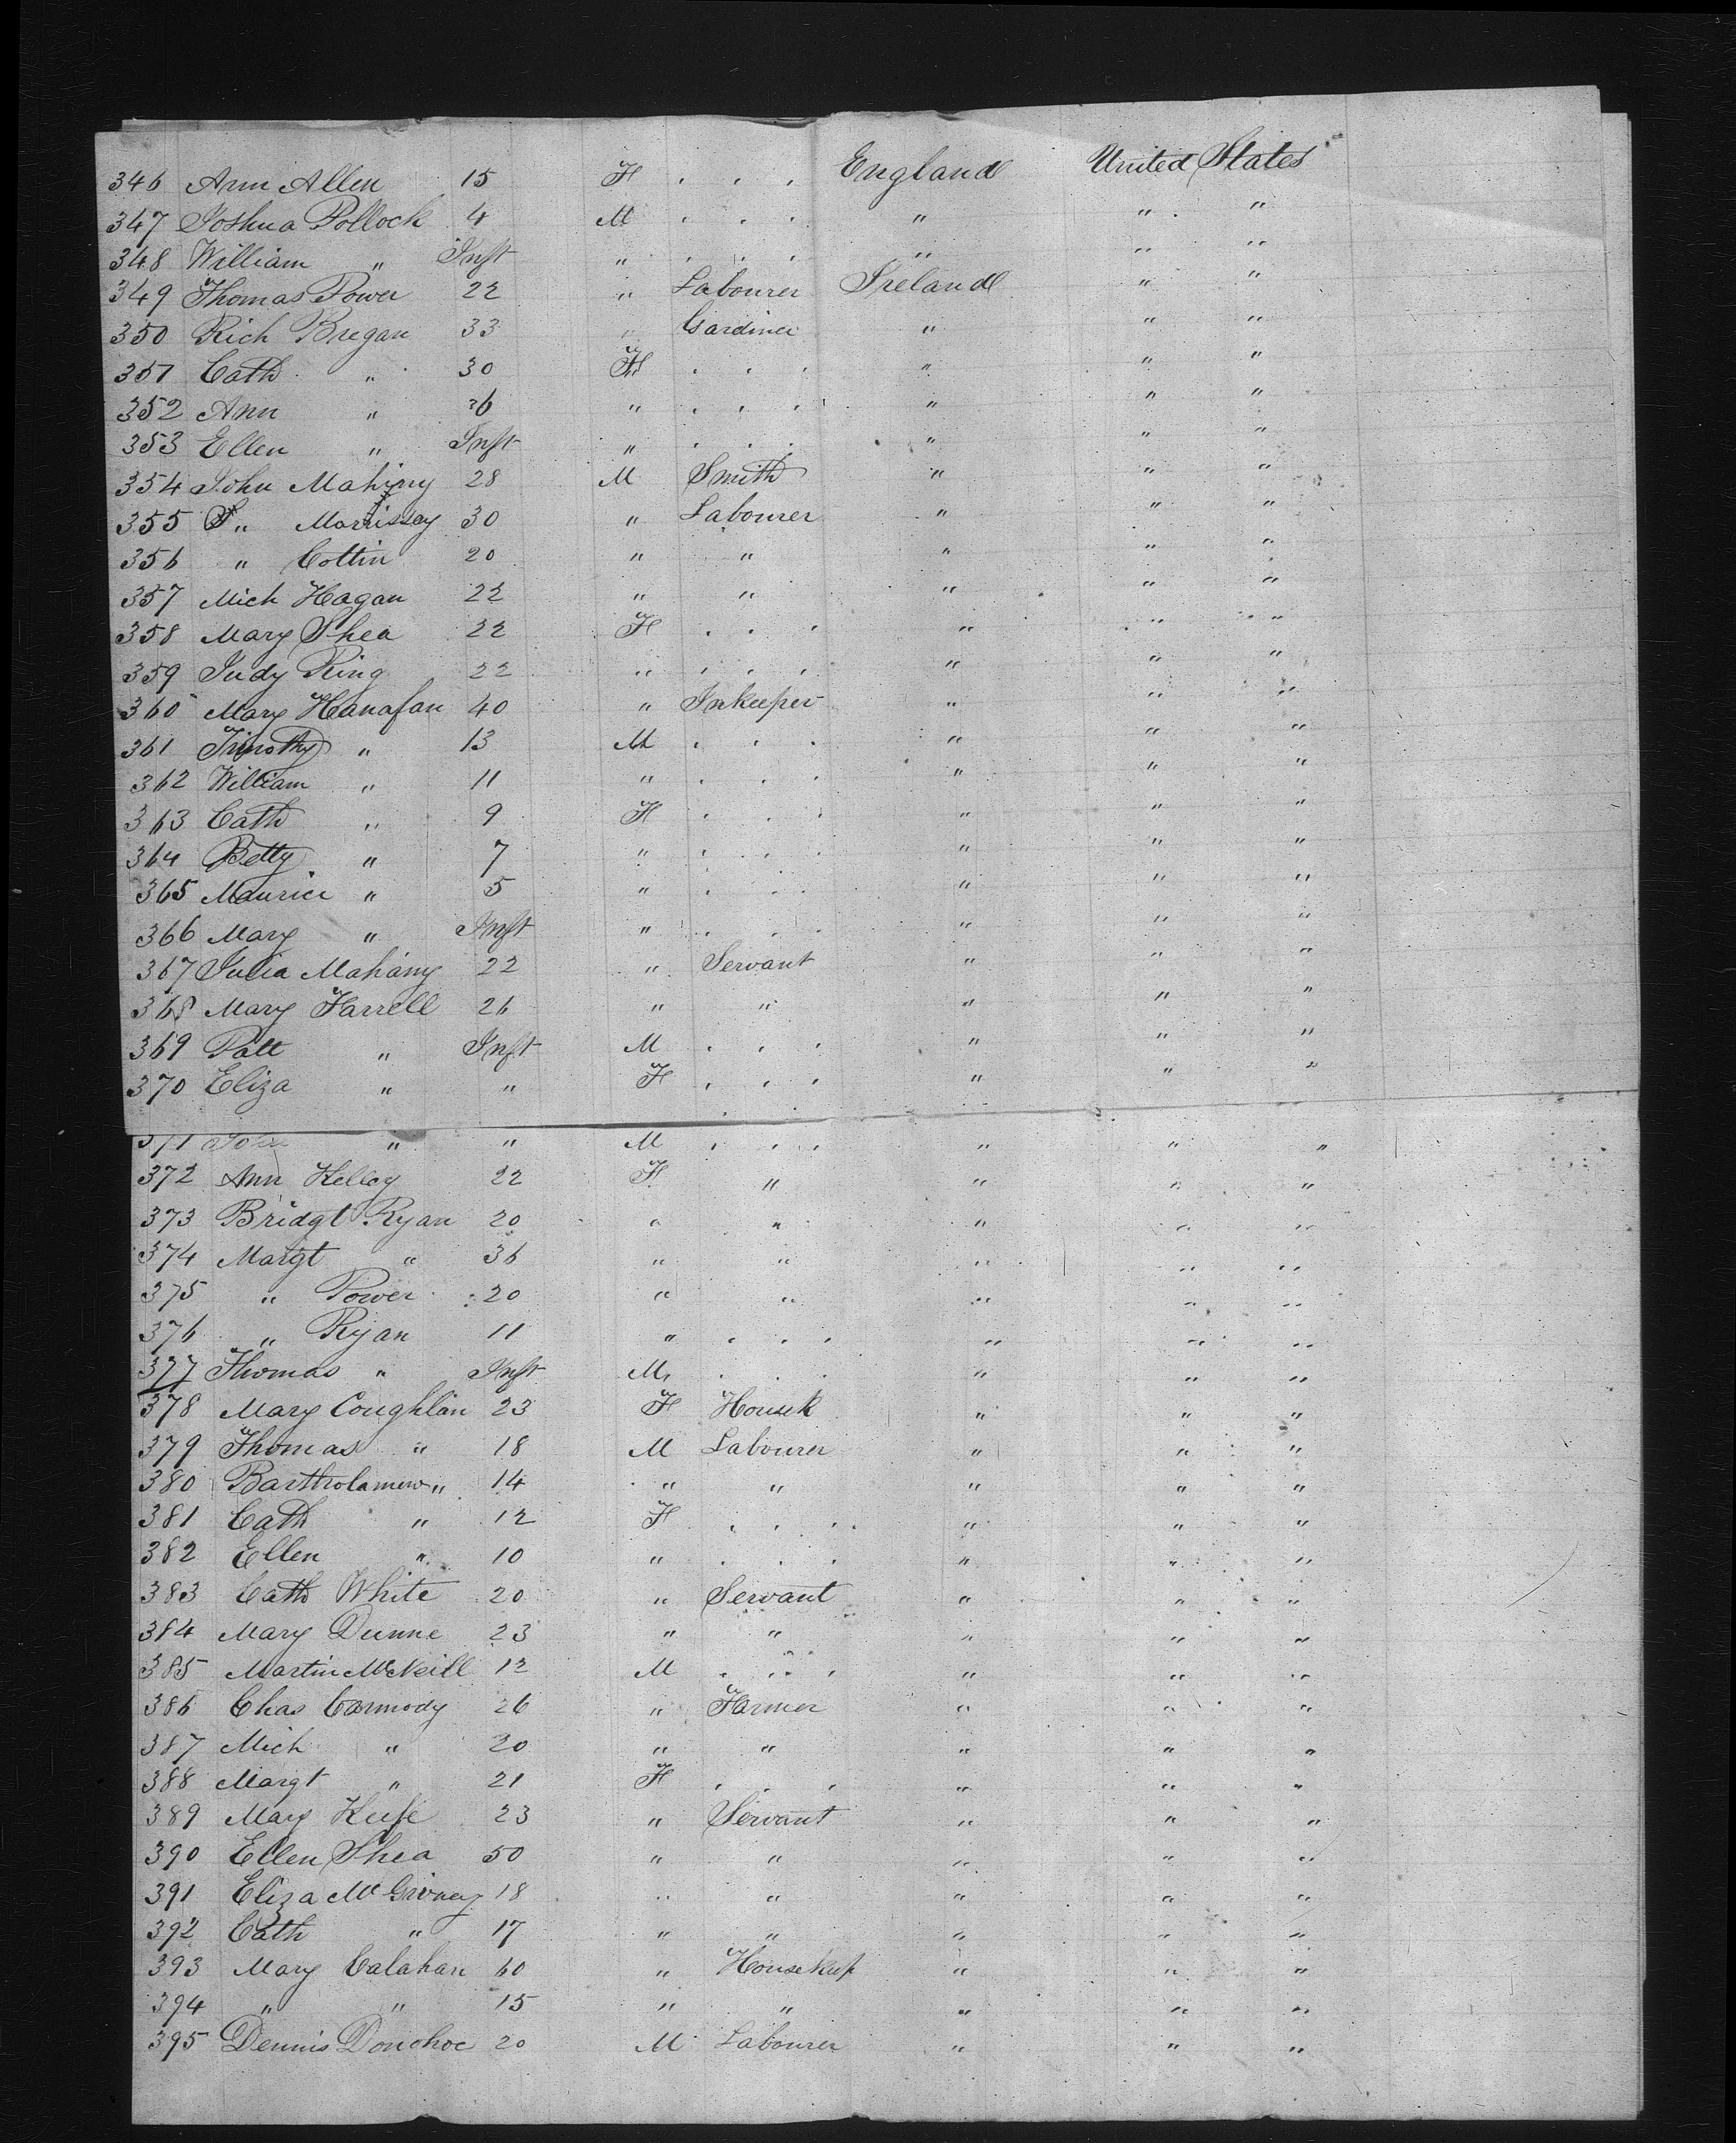 346 Ann Allen 15 F . . . England United States
347 Joshua Pollock 4 M . . . " " "
348 William " Inft " . . . " " "
349 Thomas Power 22 " Labourer Ireland " "
350 Rich Bregan 33 " Gardiner " " "
351 Cath " 30 F . . . " " "
352 Ann " 6 " . . . " " "
353 Ellen " Inft " . . . " " "
354 John Mahiny 28 M Smith " " "
355 " Morrissey 30 " Labourer " " "
356 " Cottin 20 " " " " "
357 Mich Hagan 22 " " " " "
358 Mary Shea 22 F . . . " " "
359 Judy Ring 22 " . . . " " "
360 Mary Hanafan 40 " Inkeeper " " "
361 Timothy " 13 M . . . " " "
362 William " 11 " . . . " " "
363 Cath " 9 F . . . " " "
364 Betty " 7 " . . . " " "
365 Maurice " 5 " . . . " " "
366 Mary " Inft " . . . " " "
367 Julia Mahany 22 " Servant " " "
368 Mary Farrell 26 " " " " "
369 Patt " Inft M . . . " " "
370 Eliza " " F . . . " " "
371 John " " M . . . " " "
372 Ann Kelley 22 F " " " "
373 Bridgt Ryan 20 " " " " "
374 Margt " 36 " " " " "
375 " Power 20 " " " " "
376 " Ryan 11 " . . . " " "
377 Thomas " Inft M . . . " " "
378 Mary Coughlan 23 F Housek " " "
379 Thomas " 18 M Labourer " " "
380 Bartholamew " 14 " " " " "
381 Cath " 12 F . . . " " "
382 Ellen " 10 " . . . " " "
383 Cath White 20 " Servant " " "
384 Mary Dunne 23 " " " " "
385 Martin McNeill 12 M . . . " " "
386 Chas Carmody 26 " Farmer " " "
387 Mich " 20 " " " " "
388 Margt " 21 F . . . " " "
389 Mary Keefe 23 " Servant " " "
390 Ellen Shea 50 " " " " "
391 Eliza McGivney 18 " " " " "
392 Cath " 17 " " " " "
393 Mary Calahan 60 " Housekeep " " "
394 " " 15 " " " " "
395 Dennis Donohoe 20 M Labourer " " "